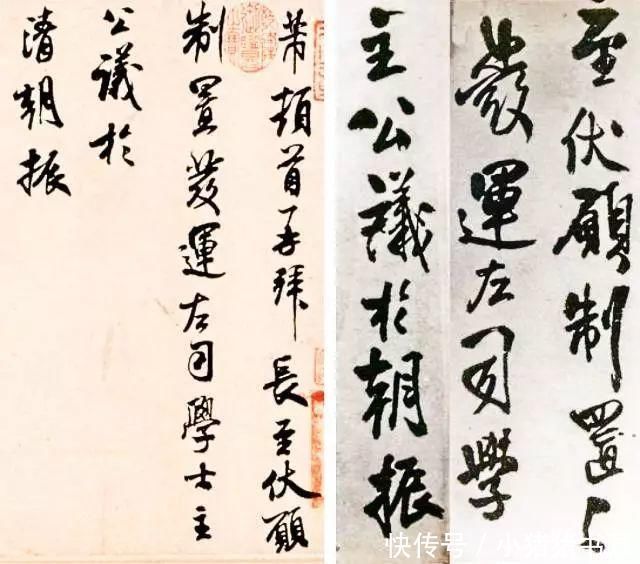 芾頓首再拜 長至伏願
制置發運左司學士主
公議於
清朝振
至伏願制置
發運左司學
主公議於朝振
快传号 / 小猪猪